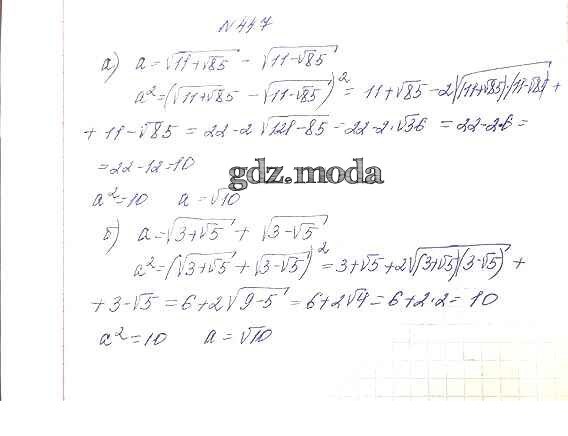 N 447
а) a = √(11+√85) - √(11-√85)
a² = (√(11+√85) - √(11-√85))² = 11+√85 - 2√((11+√85)(11-√85)) +
+ 11-√85 = 22-2√(121-85) = 22-2·√36 = 22-2·6 =
= 22-12=10
gdz.moda
a²=10 a=√10
б) a = √(3+√5) + √(3-√5)
a² = (√(3+√5) + √(3-√5))² = 3+√5+2√((3+√5)(3-√5)) +
+ 3-√5 = 6+2√(9-5) = 6+2√4 = 6+2·2 = 10
a²=10 a=√10